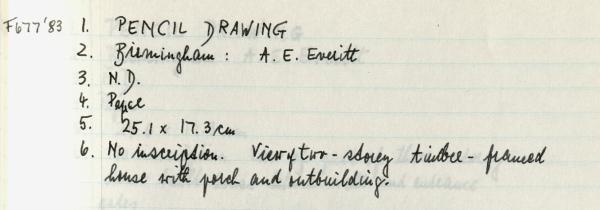 F677'83 1. PENCIL DRAWING
2. Birmingham: A. E. Everitt
3. N.D.
4. Paper
5. 25.1 x 17.3 cm
6. No inscription. View of two-storey timber-framed
house with porch and outbuilding.